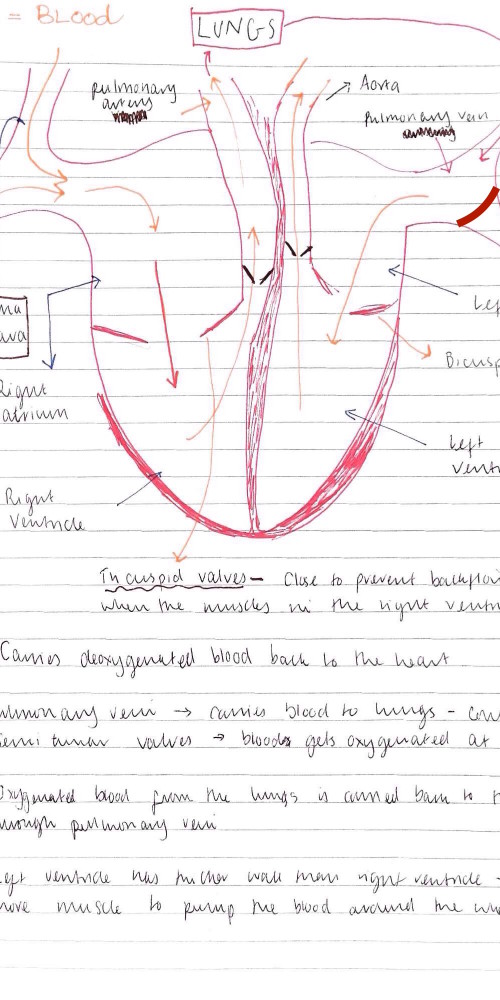 = BLOOD
LUNGS
pulmonary
artery
Aorta
Pulmonary vein
na
ava
Lef
Bicusp
Right
atrium
Left
ventr
Right
Ventricle
Tricuspid valves - Close to prevent backflow
when the muscles in the right ventr
Carries deoxygenated blood back to the heart
ulmonary vein → carries blood to lungs - con
semi lunar valves → blood gets oxygenated at
Oxygenated blood from the lungs is carried back to t
hrough pulmonary vein
Left ventricle has thicker wall than right ventricle -
more muscle to pump the blood around the who